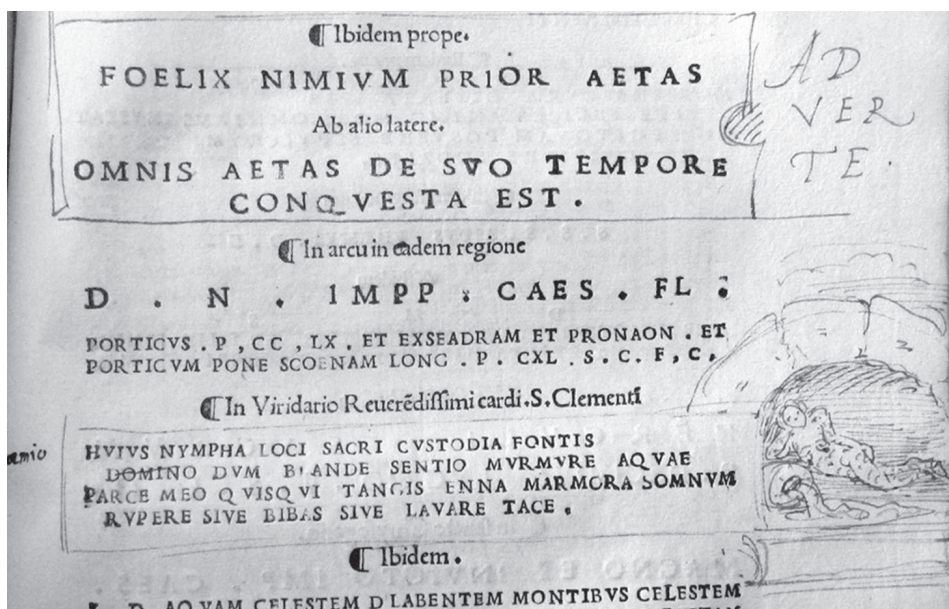 ¶ Ibidem prope.
FOELIX NIMIVM PRIOR AETAS
AD
VER
TE.
Ab alio latere.
OMNIS AETAS DE SVO TEMPORE
CONQVESTA EST.
¶ In arcu in eadem regione
D . N . IMPP : CAES . FL :
PORTICVS . P , CC , LX . ET EXSEADRAM ET PRONAON . ET
PORTICVM PONE SCOENAM LONG . P . CXL . S . C . F , C ,
¶ In Viridario Reuerēdissimi cardi . S. Clementi
HVIVS NYMPHA LOCI SACRI CVSTODIA FONTIS
DOMINO DVM BLANDE SENTIO MVRMVRE AQVAE
PARCE MEO QVISQVI TANGIS ENNA MARMORA SOMNVM
RVPERE SIVE BIBAS SIVE LAVARE TACE .
¶ Ibidem .
AQVAM CELESTEM DLABENTEM MONTIBVS CELESTEM